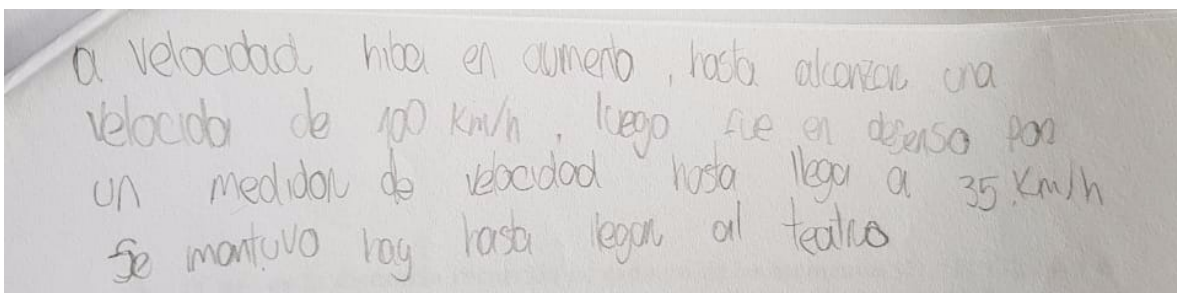 a velocidad hiba en aumento, hasta alcanzar una
velocida de 100 Km/h, luego fue en desenso por
un medidor de velocidad hasta llega a 35 Km/h
Se mantuvo hay hasta llegar al teatro